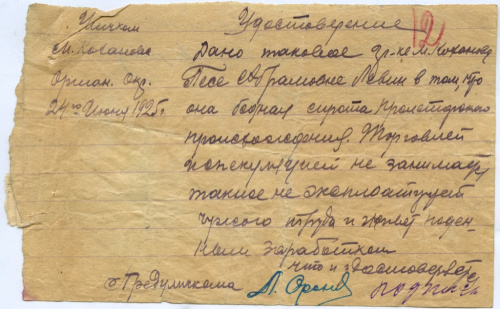 Удостоверение
2
Уличком
М. Коханово
Оршан. Окр.
24го Июня 1925г.
Дано таковое гр-ке м. Коханово
Песе Абрамовне Левин в том, что
она бедная сирота Пролетарского
происхождения. Торговлей
и спекуляцией не занимает
также не эксплоатирует
чужого труда и живет поден-
ным заработком
что и удостоверяется
Предуличкома
подпись